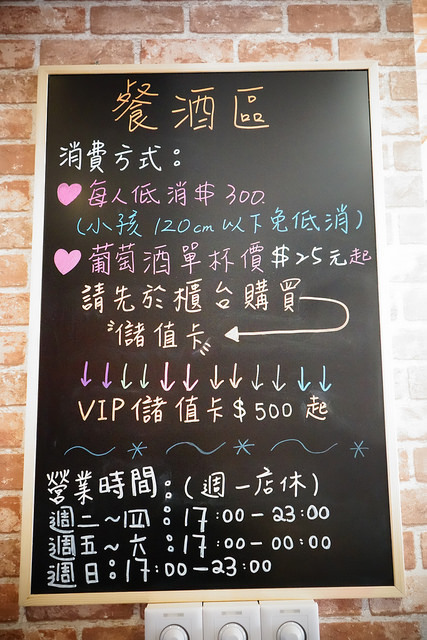 餐酒區
消費方式：
每人低消$300.
(小孩120cm以下免低消)
葡萄酒單杯價$25元起
請先於櫃台購買
儲值卡
VIP儲值卡$500起
營業時間：(週一店休)
週二～四：17:00－23:00
週五～六：17:00－00:00
週日：17:00－23:00